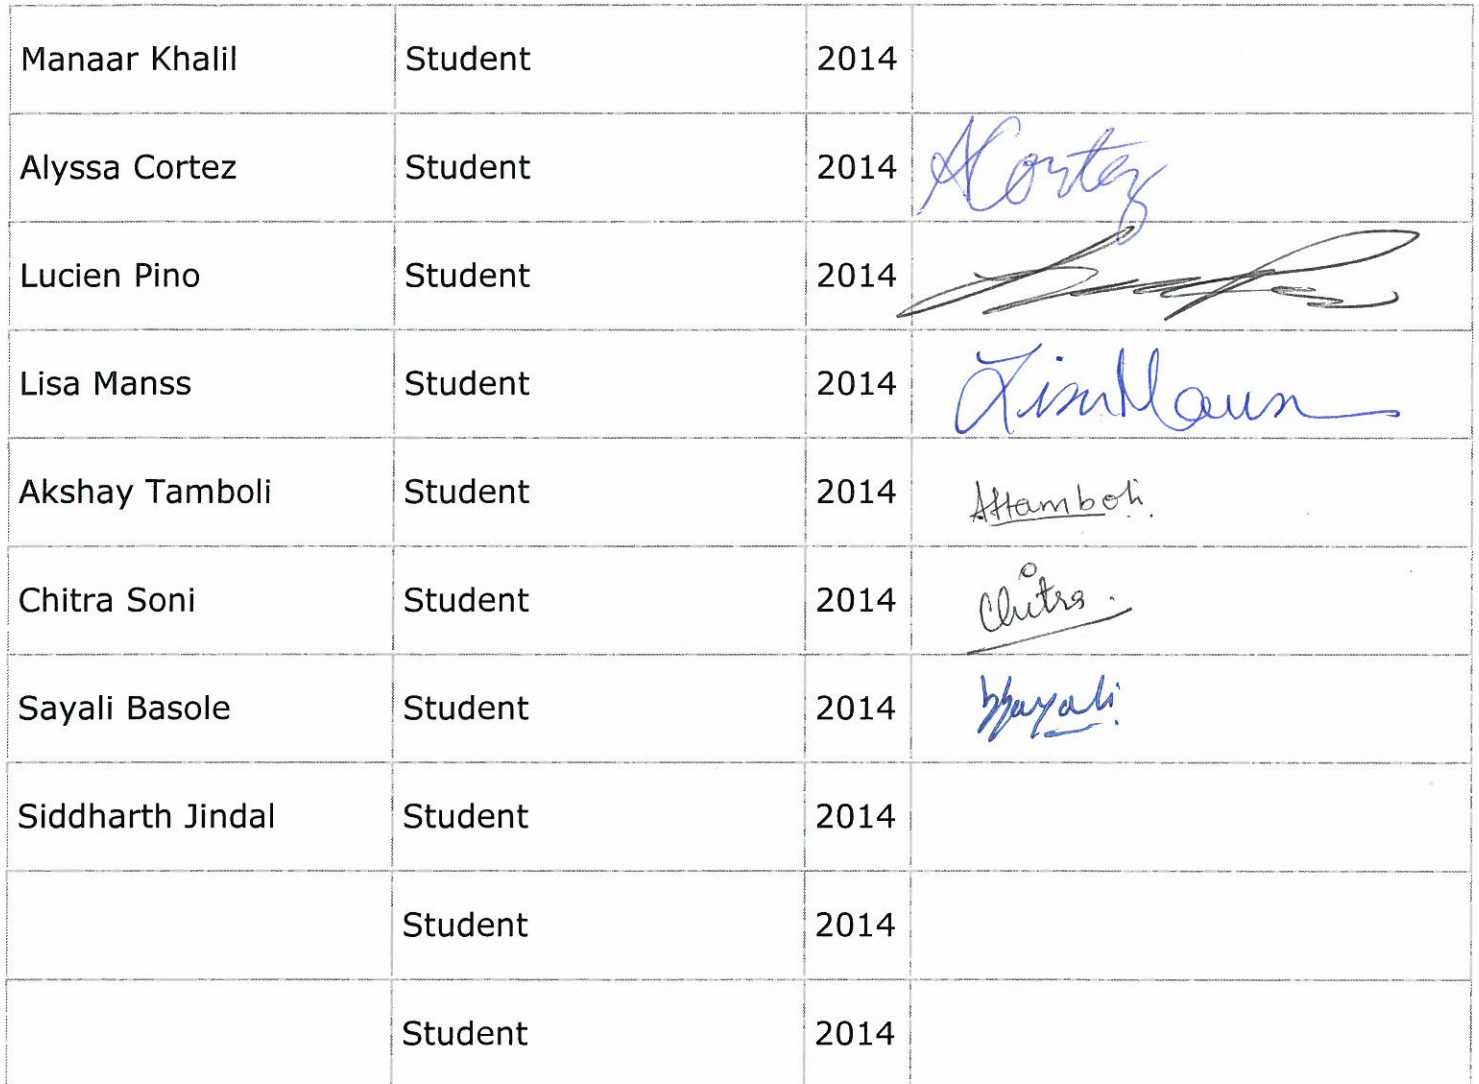 Manaar Khalil Student 2014
Alyssa Cortez Student 2014 ACortez
Lucien Pino Student 2014
Lisa Manss Student 2014 Lisa
Akshay Tamboli Student 2014 Attamboli.
Chitra Soni Student 2014 Chitra.
Sayali Basole Student 2014
Siddharth Jindal Student 2014
Student 2014
Student 2014